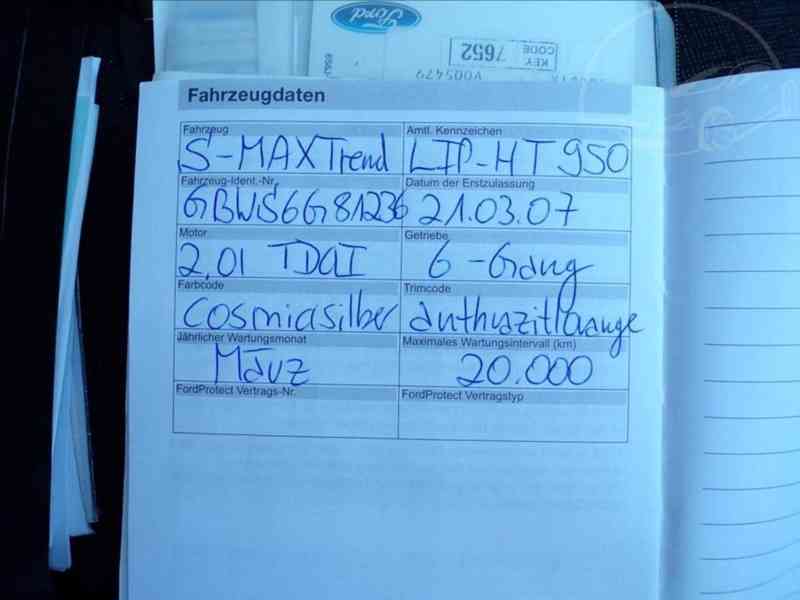 Ford
KEY CODE 7652
V005479
Fahrzeugdaten
Fahrzeug Amtl. Kennzeichen
S-MAX Trend LIP-HT 950
Fahrzeug-Ident.-Nr. Datum der Erstzulassung
GBWS6G81236 21.03.07
Motor Getriebe
2,0l TDCI 6-Gang
Farbcode Trimcode
Cosmicsilber
Jährlicher Wartungsmonat Maximales Wartungsintervall (km)
März 20.000
FordProtect Vertrags-Nr. FordProtect Vertragstyp